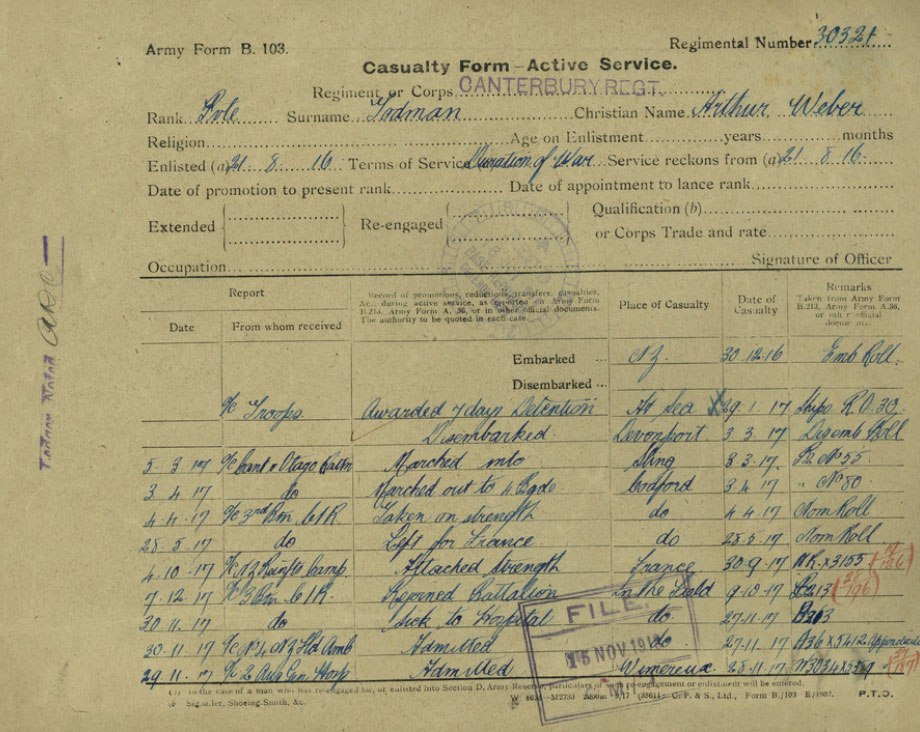 Army Form B. 103.
Regimental Number 30321
Casualty Form—Active Service.
Regiment or Corps CANTERBURY REGT.
Rank Pvte Surname Todman Christian Name Arthur Weber
Religion Age on Enlistment years months
Enlisted (a) 21 . 8 . 16 Terms of Service Duration of War Service reckons from (a) 21 . 8 . 16
Date of promotion to present rank Date of appointment to lance rank
Extended Re-engaged Qualification (b)
or Corps Trade and rate
Occupation Signature of Officer
Report
Date From whom received
Record of promotions, reductions, transfers, casualties,
&c., during active service, as reported on Army Form
B.213, Army Form A. 36, or in other official documents.
The authority to be quoted in each case.
Place of Casualty
Date of
Casualty
Remarks
Taken from Army Form
B.213, Army Form A.36,
or other official
documents.
Embarked ... NZ. 30.12.16 Emb Roll.
Disembarked ...
Troops Awarded 7 days Detention At Sea X 29.1.17 Ships R.O. 30
Disembarked Devonport 3.3.17 Disemb Roll
5.3.17 Cant & Otago Marched into Sling 3.3.17. No 55.
3.4.17 do Marched out to 4 Bgde Codford 3.4.17 " No 80.
4.4.17 3rd Bn CIR Taken on strength do 4.4.17 Nom Roll
28.5.17 do Left for France do 28.5.17 Nom Roll
4.10.17 NZ Reinfts Camp Attached Strength France 30.9.17 NR.X3155
7.12.17 3 Bn CIR Rejoined Battalion In the Field 9.10.17 B213
30.11.17 do Sick to Hospital do. 27.11.17 B213
30.11.17 No 4 NZ Fld Amb Admitted do 27.11.17 A36X5412
29.11.17 Gen. Hosp Admitted Wimereux 28.11.17
(a) In the case of a man who has re-engaged for, or enlisted into Section D, Army Reserve, particulars of such re-engagement or enlistment will be entered.
(b) Signaller, Shoeing-Smith, &c. P.T.O.
FILE
15 NOV 191